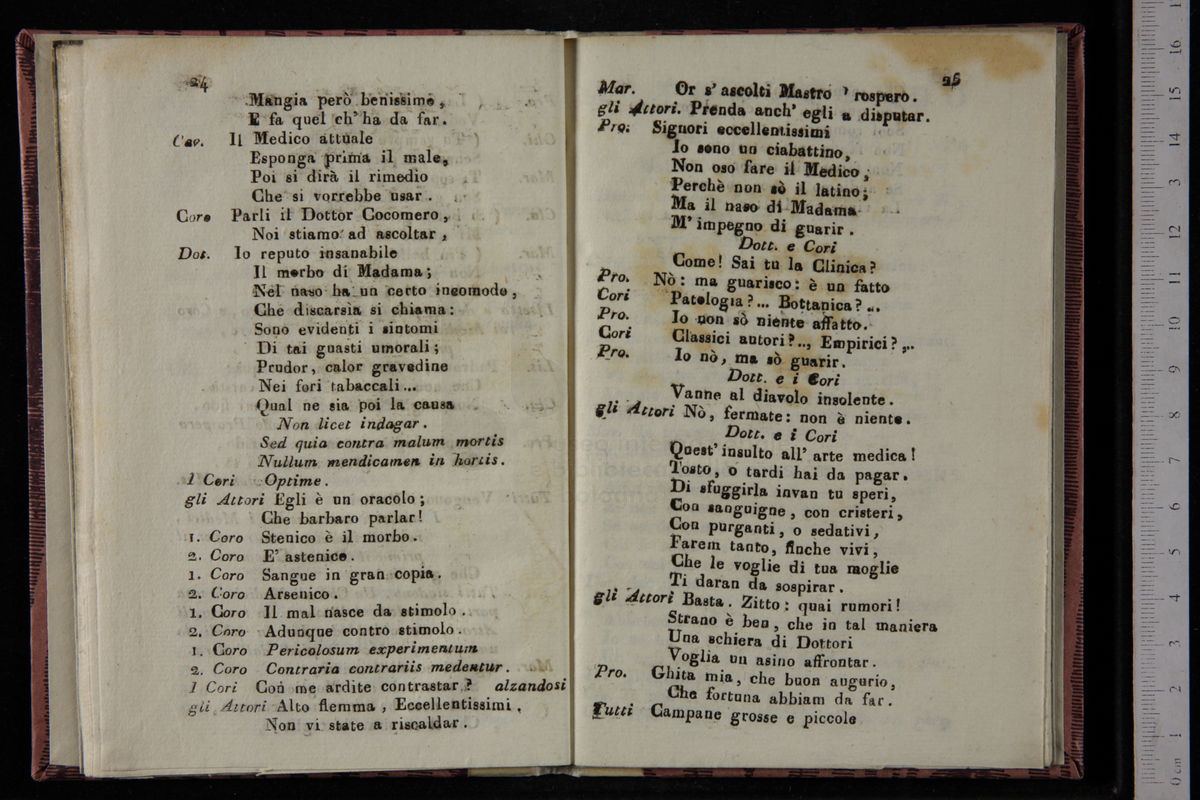 24
Mangia però benissimo,
E fa quel ch' ha da far.
Cav. Il Medico attuale
Esponga prima il male,
Poi si dirà il rimedio
Che si vorrebbe usar.
Coro Parli il Dottor Cocomero,
Noi stiamo ad ascoltar,
Dot. Io reputo insanabile
Il morbo di Madama;
Nel naso ha un certo incomodo,
Che discarsia si chiama:
Sono evidenti i sintomi
Di tai guasti umorali;
Prudor, calor gravedine
Nei fori tabaccali...
Qual ne sia poi la causa
Non licet indagar.
Sed quia contra malum mortis
Nullum mendicamen in hortis.
I Cori Optime.
gli Attori Egli è un oracolo;
Che barbaro parlar!
1. Coro Stenico è il morbo.
2. Coro E' astenico.
1. Coro Sangue in gran copia.
2. Coro Arsenico.
1. Coro Il mal nasce da stimolo.
2. Coro Adunque contro stimolo.
1. Coro Pericolosum experimentum
2. Coro Contraria contrariis medentur.
I Cori Con me ardite contrastar? alzandosi
gli Attori Alto flemma, Eccellentissimi,
Non vi state a riscaldar.
25
Mar. Or s' ascolti Mastro ' rospero.
gli Attori. Prenda anch' egli a disputar.
Pro. Signori eccellentissimi
Io sono un ciabattino,
Non oso fare il Medico,
Perchè non sò il latino;
Ma il naso di Madama
M' impegno di guarir.
Dott. e Cori
Come! Sai tu la Clinica?
Pro. Nò: ma guarisco: è un fatto
Cori Patologia?... Bottanica?...
Pro. Io non sò niente affatto.
Cori Classici autori?.., Empirici?,..
Pro. Io nò, ma sò guarir.
Dott. e i Cori
Vanne al diavolo insolente.
gli Attori Nò, fermate: non è niente.
Dott. e i Cori
Quest' insulto all' arte medica!
Tosto, o tardi hai da pagar.
Di sfuggirla invan tu speri,
Con sanguigne, con cristeri,
Con purganti, o sedativi,
Farem tanto, finche vivi,
Che le voglie di tua moglie
Ti daran da sospirar.
gli Attori Basta. Zitto: quai rumori!
Strano è ben, che in tal maniera
Una schiera di Dottori
Voglia un asino affrontar.
Pro. Ghita mia, che buon augurio,
Che fortuna abbiam da far.
Tutti Campane grosse e piccole
0 cm 1 2 3 4 5 6 7 8 9 10 11 12 13 14 15 16